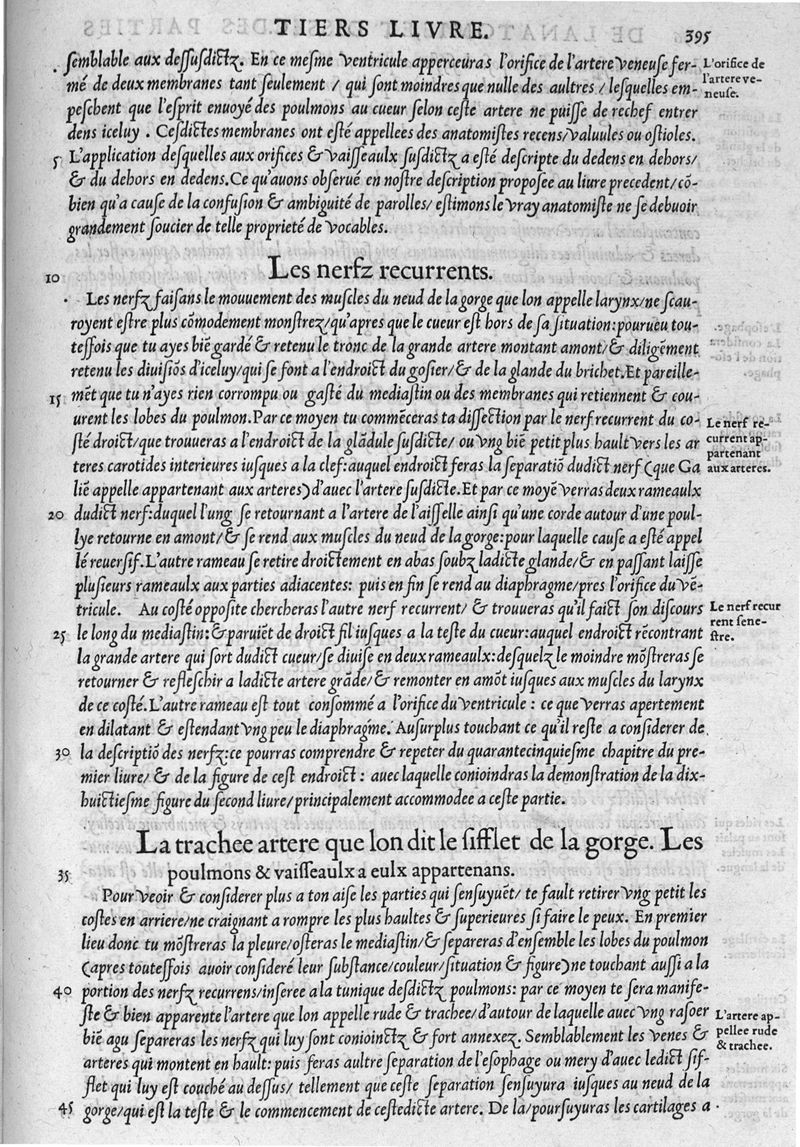 TIERS LIVRE. 395
semblable aux dessusdictz. En ce mesme ventricule apperceuras l'orifice de l'artere veneuse fer-
L'orifice de
l'artere ve-
neuse.
mé de deux membranes tant seulement / qui sont moindres que nulle des aultres / lesquelles em-
peschent que l'esprit enuoyé des poulmons au cueur selon ceste artere ne puisse de rechef entrer
dens iceluy. Cesdictes membranes ont esté appellees des anatomistes recens/valuules ou ostioles.
5 L'application desquelles aux orifices & vaisseaulx susdictz a esté descripte du dedens en dehors/
& du dehors en dedens. Ce qu'auons obserué en nostre description proposee au liure precedent/cõ-
bien qu'a cause de la confusion & ambiguité de parolles/ estimons le vray anatomiste ne se debuoir
grandement soucier de telle proprieté de vocables.
10 Les nerfz recurrents.
Les nerfz faisans le mouuement des muscles du neud de la gorge que lon appelle larynx/ne scau-
royent estre plus cõmodement monstrez/qu'apres que le cueur est hors de sa situation: pourueu tou-
tesfois que tu ayes biẽ gardé & retenu le tronc de la grande artere montant amont/& diligẽment
retenu les diuisiõs d'iceluy/qui se font a l'endroict du gosier/& de la glande du brichet. Et pareille-
15 mẽt que tu n'ayes rien corrompu ou gasté du mediastin ou des membranes qui retiennent & cou-
urent les lobes du poulmon. Par ce moyen tu commẽceras ta dissection par le nerf recurrent du co-
Le nerf re-
current ap-
partenant
aux arteres.
sté droict/que trouueras a l'endroict de la glãdule susdicte/ ou vng biẽ petit plus hault vers les ar
teres carotides interieures iusques a la clef: auquel endroict feras la separatiõ dudict nerf (que Ga
liẽ appelle appartenant aux arteres) d'auec l'artere susdicte. Et par ce moyẽ verras deux rameaulx
20 dudict nerf: duquel l'ung se retournant a l'artere de l'aisselle ainsi qu'une corde autour d'une poul-
lye retourne en amont/& se rend aux muscles du neud de la gorge: pour laquelle cause a esté appel
lé reuersif. L'autre rameau se retire droictement en abas soubz ladicte glande/& en passant laisse
plusieurs rameaulx aux parties adiacentes: puis en fin se rend au diaphragme/pres l'orifice du vẽ-
tricule. Au costé opposite chercheras l'autre nerf recurrent/ & trouueras qu'il faict son discours
Le nerf recur
rent sene-
stre.
25 le long du mediastin: & paruiẽt de droict fil iusques a la teste du cueur: auquel endroict rẽcontrant
la grande artere qui sort dudict cueur/se diuise en deux rameaulx: desquelz le moindre mõstreras se
retourner & refleschir a ladicte artere grãde/& remonter en amõt iusques aux muscles du larynx
de ce costé. L'autre rameau est tout consommé a l'orifice du ventricule : ce que verras apertement
en dilatant & estendant vng peu le diaphragme. Au surplus touchant ce qu'il reste a considerer de
30 la descriptiõ des nerfz: ce pourras comprendre & repeter du quarantecinquiesme chapitre du pre-
mier liure/ & de la figure de cest endroict : auec laquelle conioindras la demonstration de la dix-
huictiesme figure du second liure/principalement accommodee a ceste partie.
La trachee artere que lon dit le sifflet de la gorge. Les
35 poulmons & vaisseaulx a eulx appartenans.
Pour veoir & considerer plus a ton aise les parties qui sensuyuẽt/ te fault retirer vng petit les
costes en arriere/ne craignant a rompre les plus haultes & superieures si faire le peux. En premier
lieu donc tu mõstreras la pleure/osteras le mediastin/& separeras d'ensemble les lobes du poulmon
(apres toutesfois auoir consideré leur substance/couleur/situation & figure) ne touchant aussi a la
40 portion des nerfz recurrens/inseree a la tunique desdictz poulmons: par ce moyen te sera manife-
ste & bien apparente l'artere que lon appelle rude & trachee/d'autour de laquelle auec vng rasoer
L'artere ap-
pellee rude
& trachee.
biẽ agu separeras les nerfz qui luy sont conioinctz & fort annexez. Semblablement les venes &
arteres qui montent en hault: puis feras aultre separation de l'esophage ou mery d'auec ledict sif-
flet qui luy est couché au dessus/ tellement que ceste separation sensuyura iusques au neud de la
45 gorge/qui est la teste & le commencement de cestedicte artere. De la/poursuyuras les cartilages a